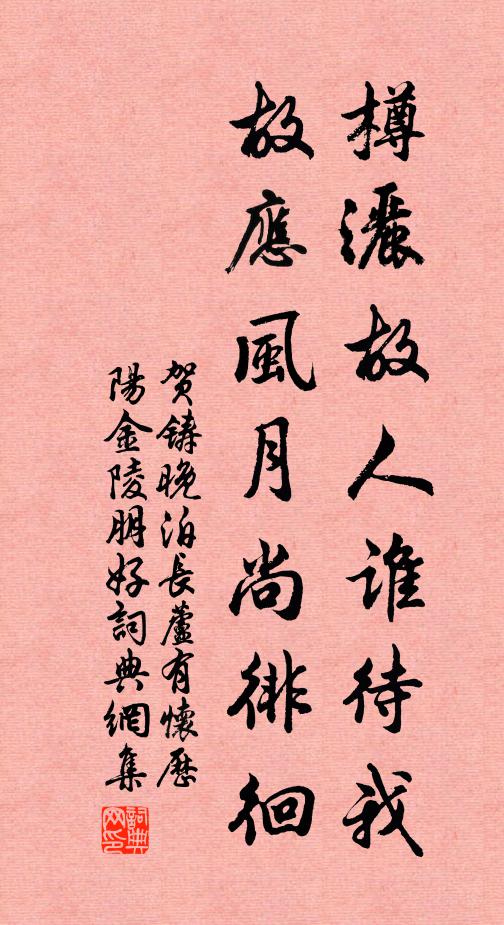 樽灑故人誰待我
故應風月尚徘徊
贺鑄晚泊長蘆有懷歷
陽金陵朋好詞典網集
詞典
网印